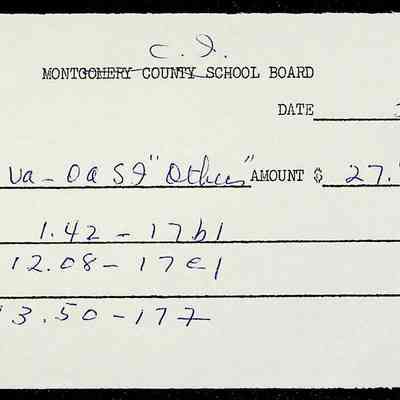 C. I.
MONTGOMERY COUNTY SCHOOL BOARD
DATE
Va - OASI "Others" AMOUNT $ 27.
1.42 - 17b1
12.08 - 17e1
3.50 - 177